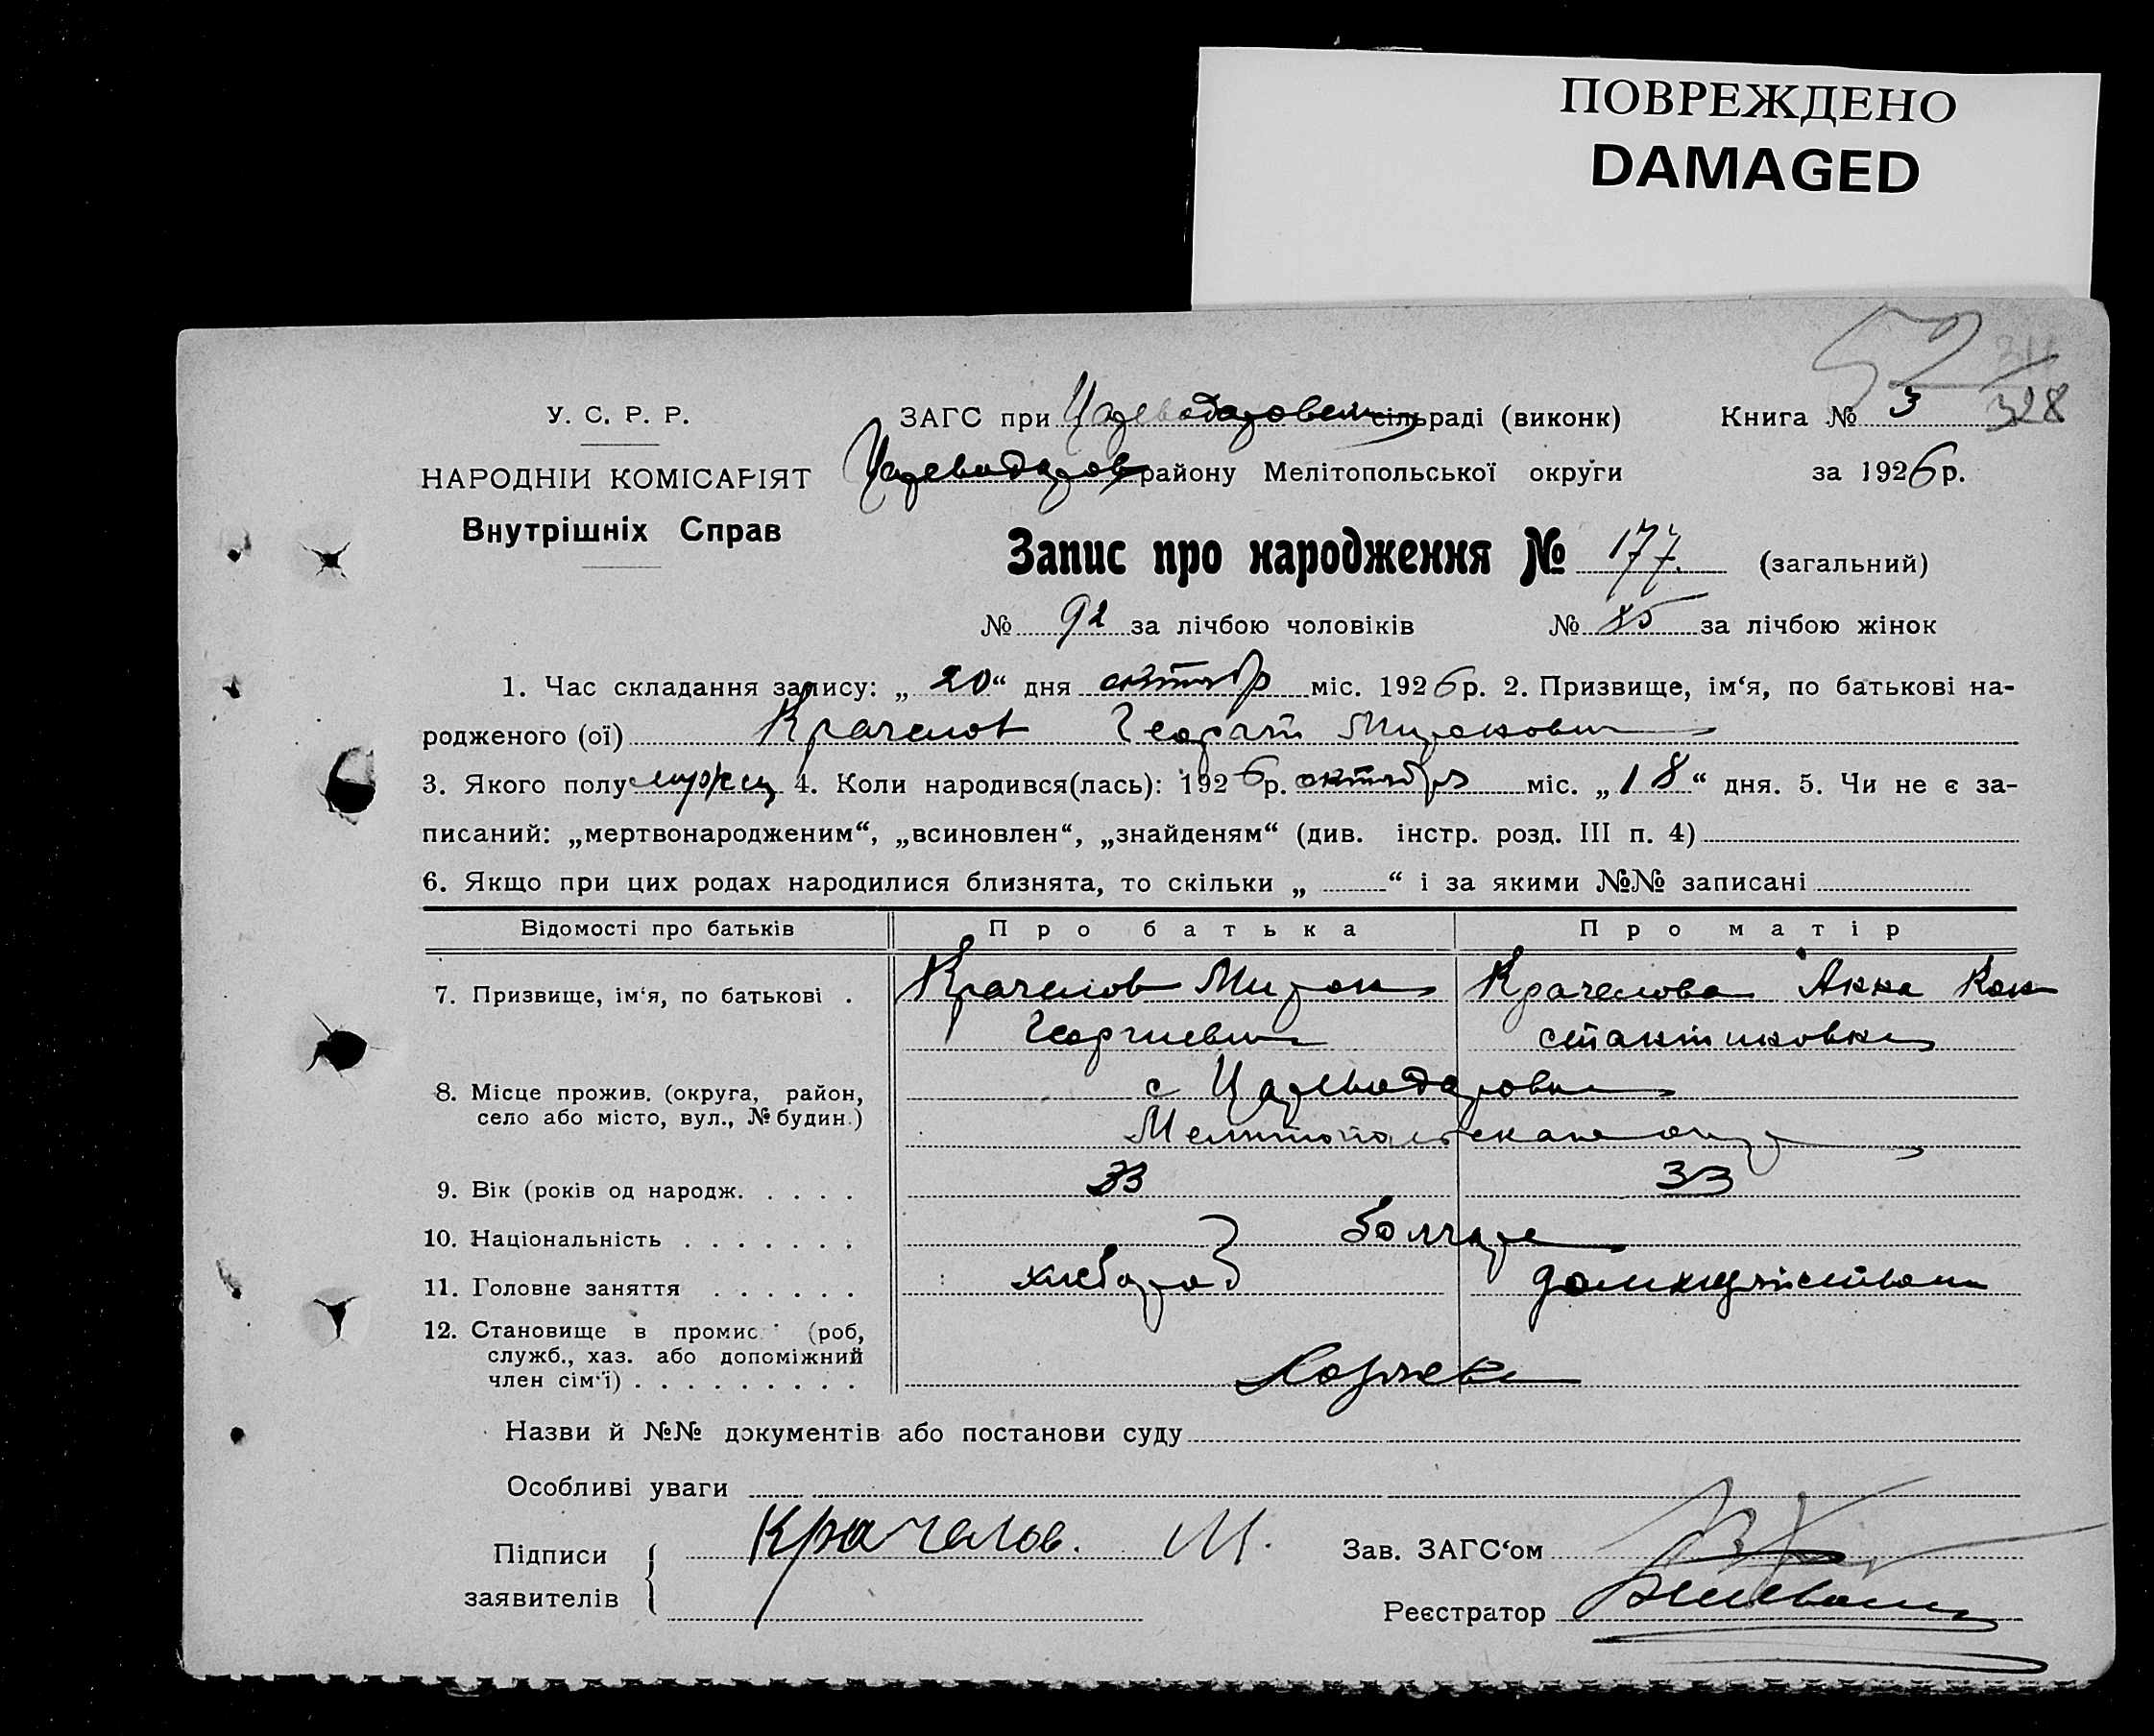 ПОВРЕЖДЕНО
DAMAGED
52
328
У. С. Р. Р.
ЗАГС при Цареводаровск сільраді (виконк)
Книга № 3
НАРОДНІИ КОМІСАРІЯТ
Цареводаров району Мелітопольської округи
за 1926 р.
Внутрішніх Справ
Запис про народження № 177. (загальний)
№ 92 за лічбою чоловіків № 85 за лічбою жінок
1. Час складання запису: „ 20 “ дня октябр міс. 1926 р. 2. Призвище, ім‘я, по батькові на-
родженого (ої) Крачелов Георгий Миронович
3. Якого полу мужск 4. Коли народився(лась): 1926 р. октябрь міс. „ 18 “ дня. 5. Чи не є за-
писаний: „мертвонародженим“, „всиновлен“, „знайденям“ (див. інстр. розд. III п. 4)
6. Якщо при цих родах народилися близнята, то скільки „ “ і за якими №№ записані
Відомості про батьків Про батька Про матір
7. Призвище, ім‘я, по батькові . Крачелов Мирон Крачелова Анна Кон
Георгиевич стантиновна
8. Місце прожив. (округа, район, с Цареводаровка
село або місто, вул., № будин.) Мелитопольская окр
9. Вік (років од народж. . . . . 33 33
10. Національність . . . . . . . болгаре
11. Головне заняття . . . . . . хлебороб домхозяйством
12. Становище в промис (роб,
служб., хаз. або допоміжний
член сім‘ї) . . . . . . . . . Хозяева
Назви й №№ документів або постанови суду
Особливі уваги
Підписи
заявителів
Крачелов. М.
Зав. ЗАГС‘ом
Реєстратор